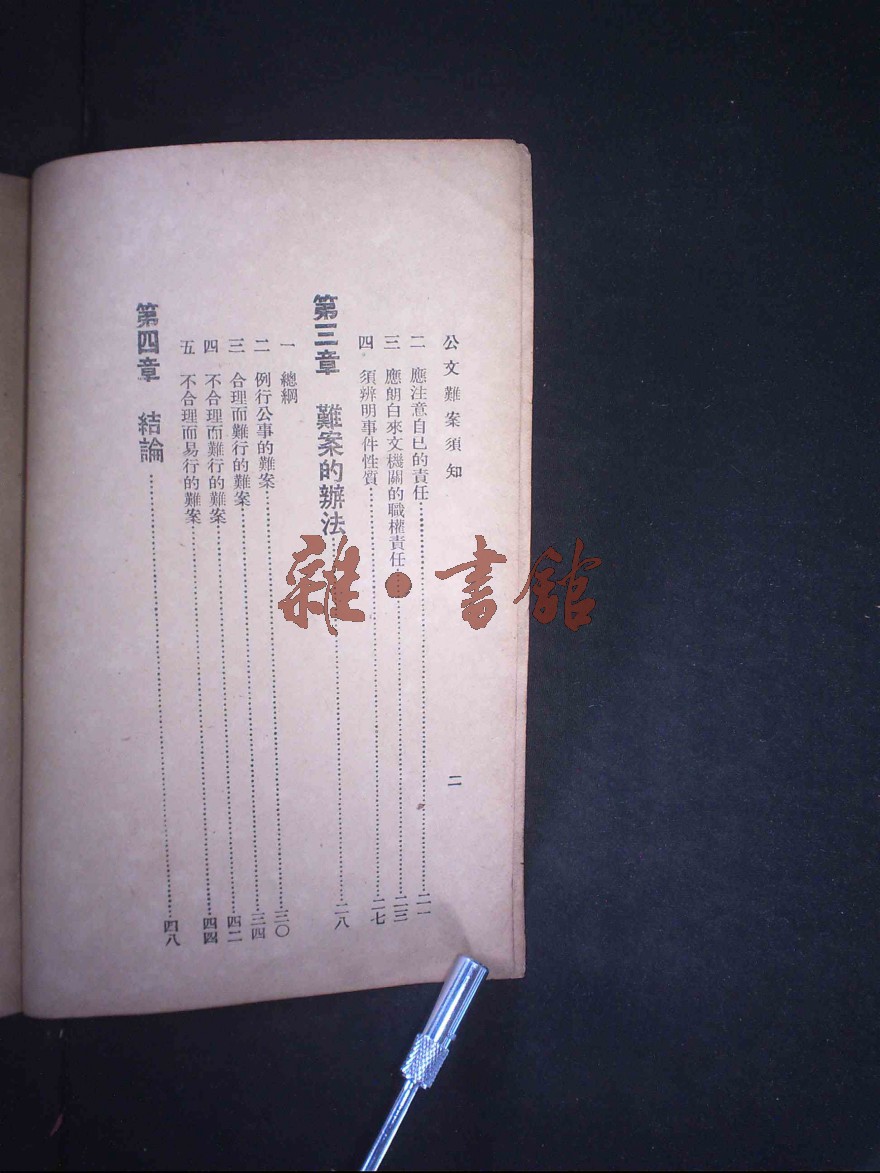 公文難案須知
二
二 應注意自已的責任……二一
三 應朗白來文機關的職權責任……二三
四 須辨明事件性質……二七
第三章 難案的辦法……二八
一 總綱
二 例行公事的難案……三〇
三 合理而難行的難案……三四
四 不合理而難行的難案……四二
五 不合理而易行的難案……四四
第四章 結論……四八
雜·書館